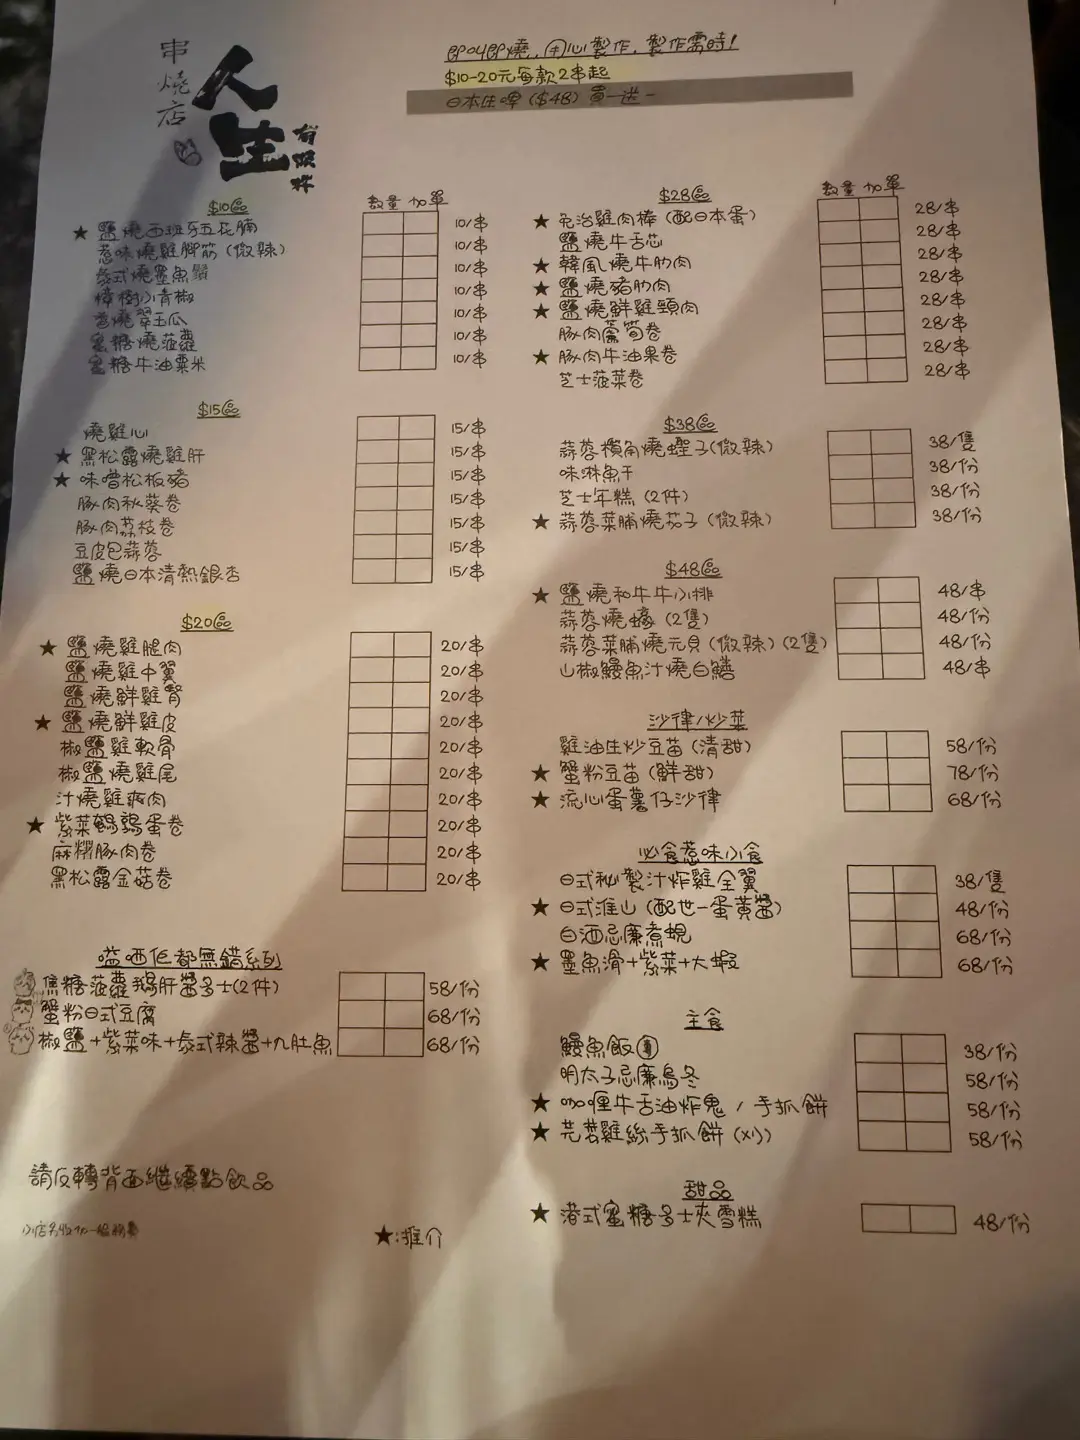 串燒店
人生
有限杯
即叫即燒,用心製作,製作需時!
$10-20元每款2串起
日本生啤($48)買一送一
$10區 數量 加單
★ 鹽燒西班牙五花腩 10/串
惹味燒雞腳筋(微辣) 10/串
泰式燒墨魚鬚 10/串
樟樹小青椒 10/串
燒翠玉瓜 10/串
蜜糖燒菠蘿 10/串
蜜糖牛油粟米 10/串
$15區
燒雞心 15/串
★ 黑松露燒雞肝 15/串
★ 味噌松板豬 15/串
豚肉秋葵卷 15/串
豚肉荔枝卷 15/串
豆皮包蒜蓉 15/串
鹽燒日本清熱銀杏 15/串
$20區
★ 鹽燒雞腿肉 20/串
鹽燒雞中翼 20/串
鹽燒鮮雞腎 20/串
★ 鹽燒鮮雞皮 20/串
椒鹽雞軟骨 20/串
椒鹽燒雞尾 20/串
汁燒雞爽肉 20/串
★ 紫菜鵪鶉蛋卷 20/串
麻糬豚肉卷 20/串
黑松露金菇卷 20/串
嗌晒佢都無錯系列
焦糖菠蘿鵝肝醬多士(2件) 58/份
蟹粉日式豆腐 68/份
椒鹽+紫菜味+泰式辣醬+九肚魚 68/份
請反轉背面繼續點飲品
小店另收加一服務費
★:推介
$28區 數量 加單
★ 免治雞肉棒(配日本蛋) 28/串
鹽燒牛舌芯 28/串
★ 韓風燒牛肋肉 28/串
★ 鹽燒豬肋肉 28/串
★ 鹽燒鮮雞頸肉 28/串
豚肉蘆筍卷 28/串
★ 豚肉牛油果卷 28/串
芝士菠菜卷 28/串
$38區
蒜蓉欖角燒蟶子(微辣) 38/隻
味淋魚干 38/份
芝士年糕(2件) 38/份
★ 蒜蓉菜脯燒茄子(微辣) 38/份
$48區
★ 鹽燒和牛牛小排 48/串
蒜蓉燒蠔(2隻) 48/份
蒜蓉菜脯燒元貝(微辣)(2隻) 48/份
山椒鰻魚汁燒白鱔 48/串
沙律/炒菜
雞油生炒豆苗(清甜) 58/份
★ 蟹粉豆苗(鮮甜) 78/份
★ 流心蛋薯仔沙律 68/份
必食惹味小食
日式秘製汁炸雞全翼 38/隻
★ 日式淮山(配世一蛋黃醬) 48/份
白酒忌廉煮蜆 68/份
★ 墨魚滑+紫菜+大蝦 68/份
主食
鰻魚飯 38/份
明太子忌廉烏冬 58/份
★ 咖喱牛舌油炸鬼/手抓餅 58/份
★ 芫荽雞絲手抓餅(凍) 58/份
甜品
★ 港式蜜糖多士夾雪糕 48/份